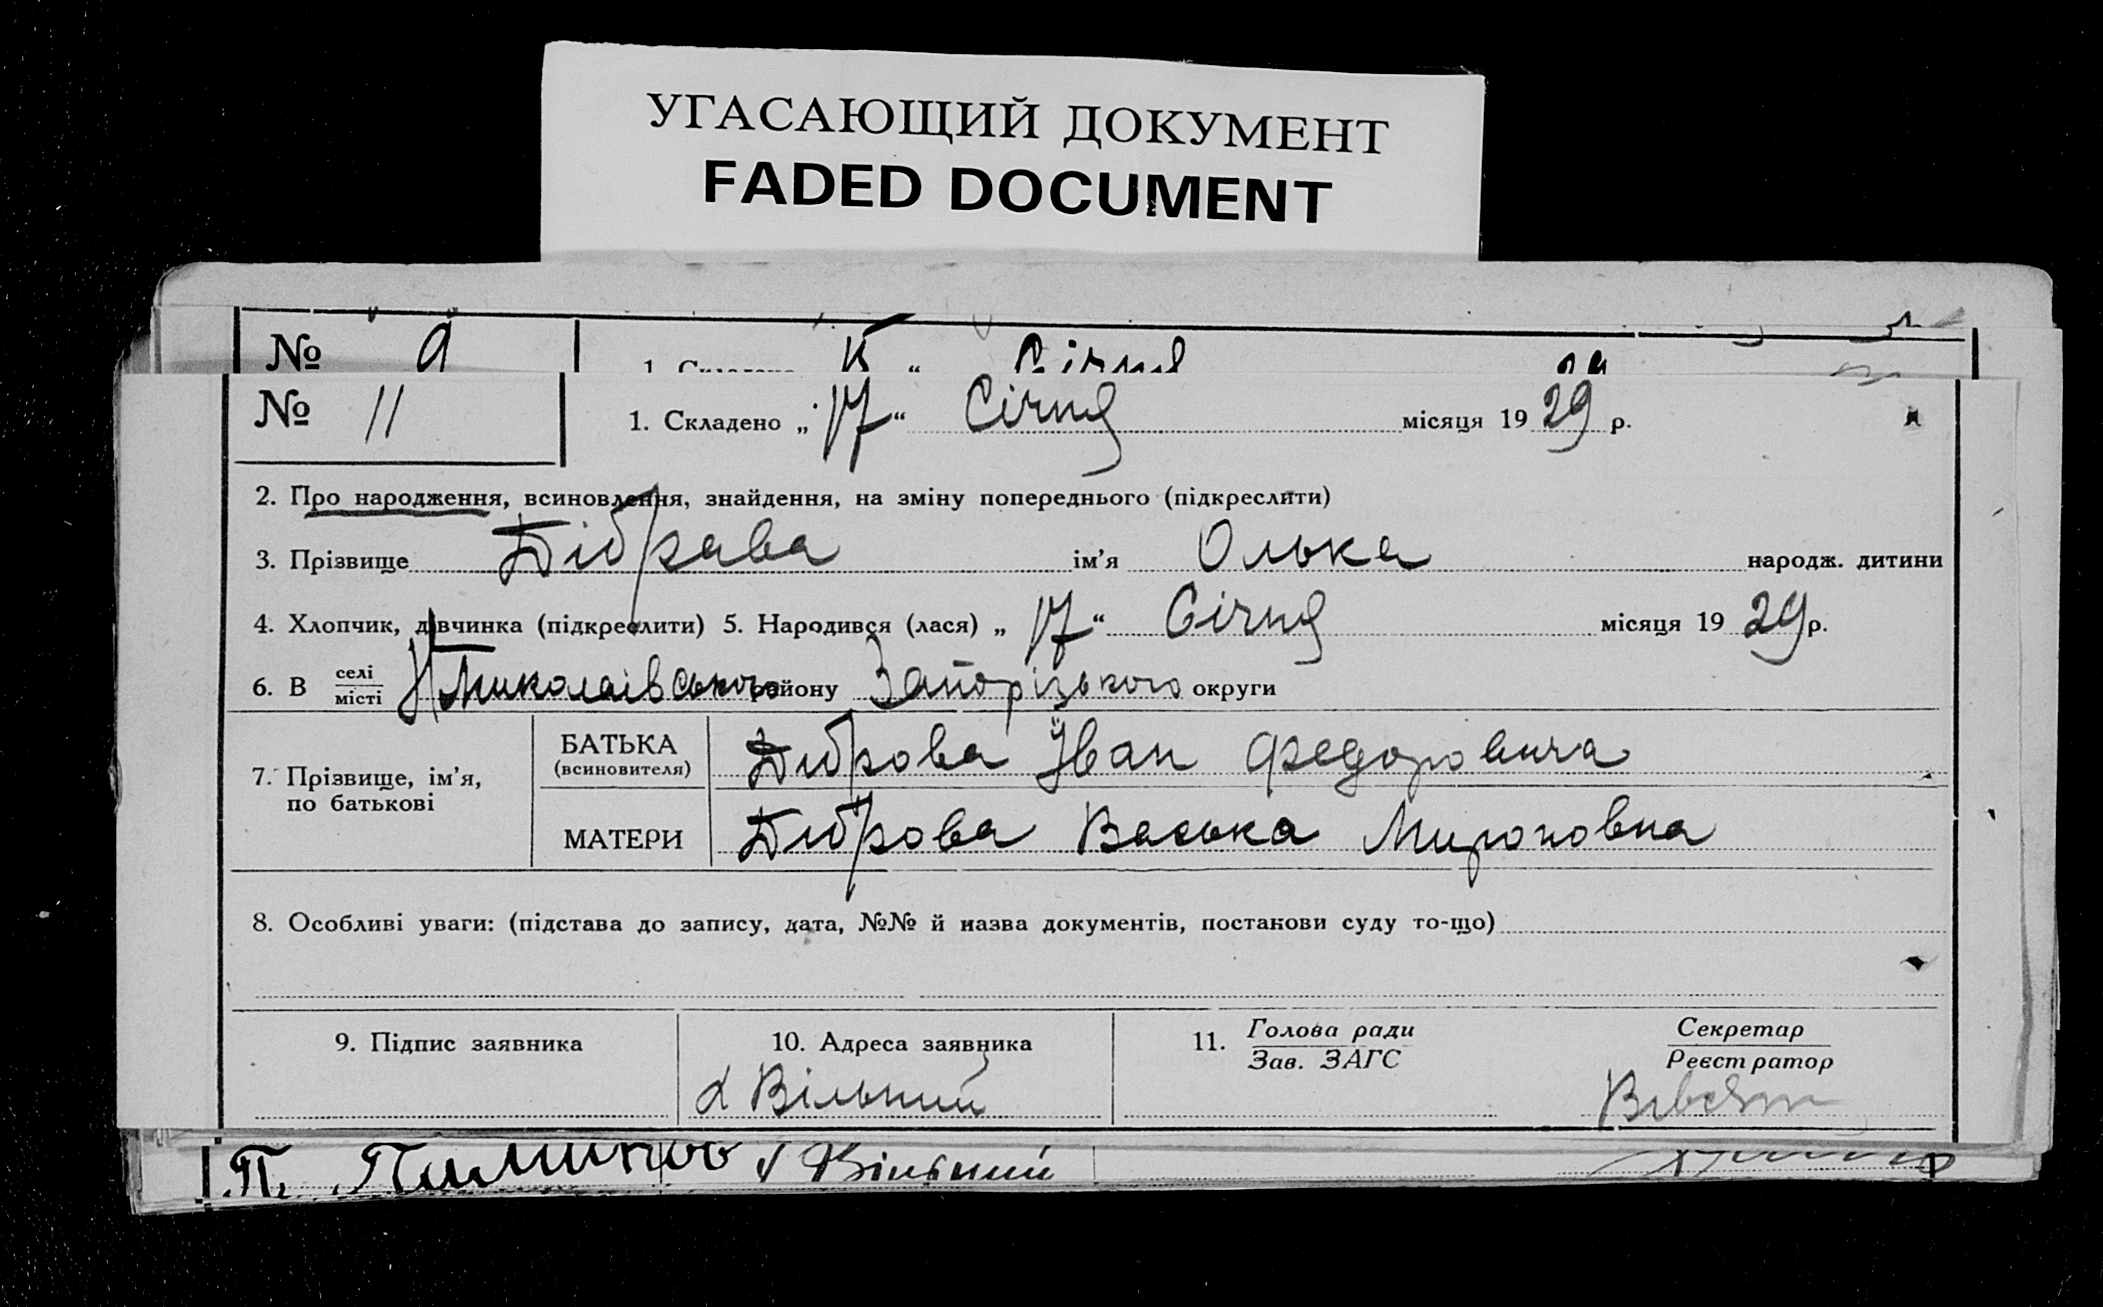 УГАСАЮЩИЙ ДОКУМЕНТ
FADED DOCUMENT
№
№ 11 1. Складено „17“ Січня місяця 1929 р.
2. Про народження, всиновлення, знайдення, на зміну попереднього (підкреслити)
3. Прізвище Дібрава ім’я Олька народж. дитини
4. Хлопчик, дівчинка (підкреслити) 5. Народився (лася) „17“ Січня місяця 1929 р.
6. В селі
місті Н Миколаівського району Запорізького округи
7. Прізвище, ім’я,
по батькові
БАТЬКА
(всиновителя) Діброва Іван Федоровича
МАТЕРИ Діброва Васька Мироновна
8. Особливі уваги: (підстава до запису, дата, №№ й назва документів, постанови суду то-що)
9. Підпис заявника 10. Адреса заявника 11. Голова ради
Зав. ЗАГС
Секретар
Реєстратор
х Вільний
Вільний